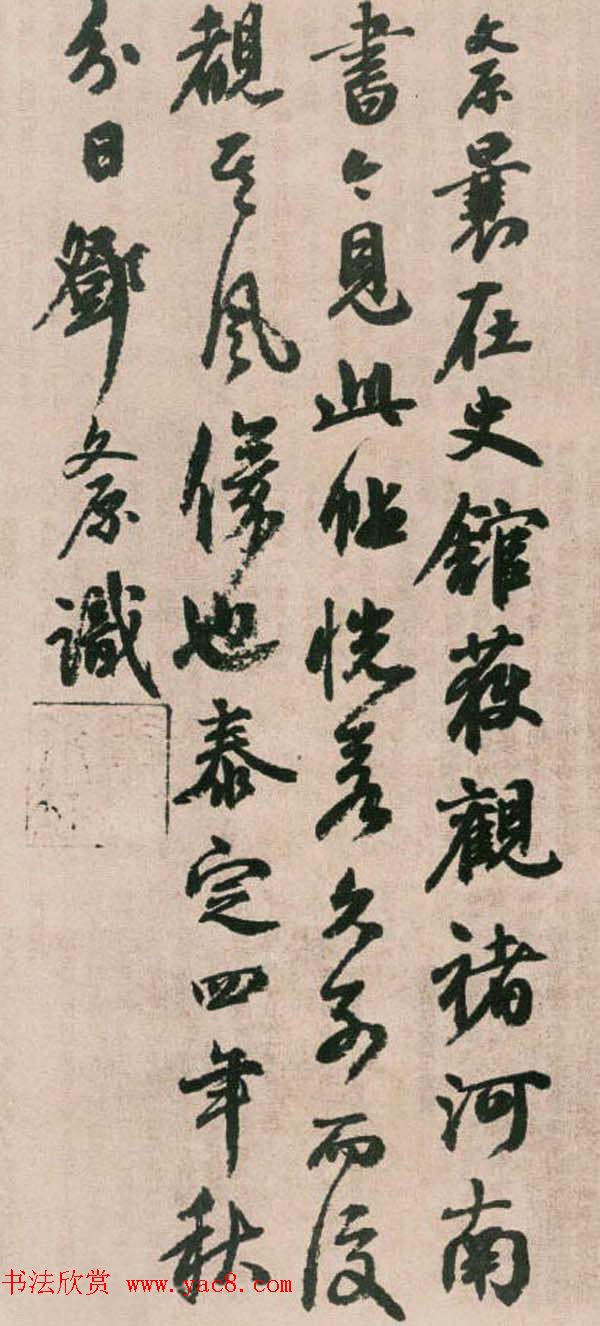 文原曩在史館獲觀褚河南
書今見此帖恍若久別而復
覩其風儀也泰定四年秋
分日鄧文原識
书法欣赏 www.yac8.com